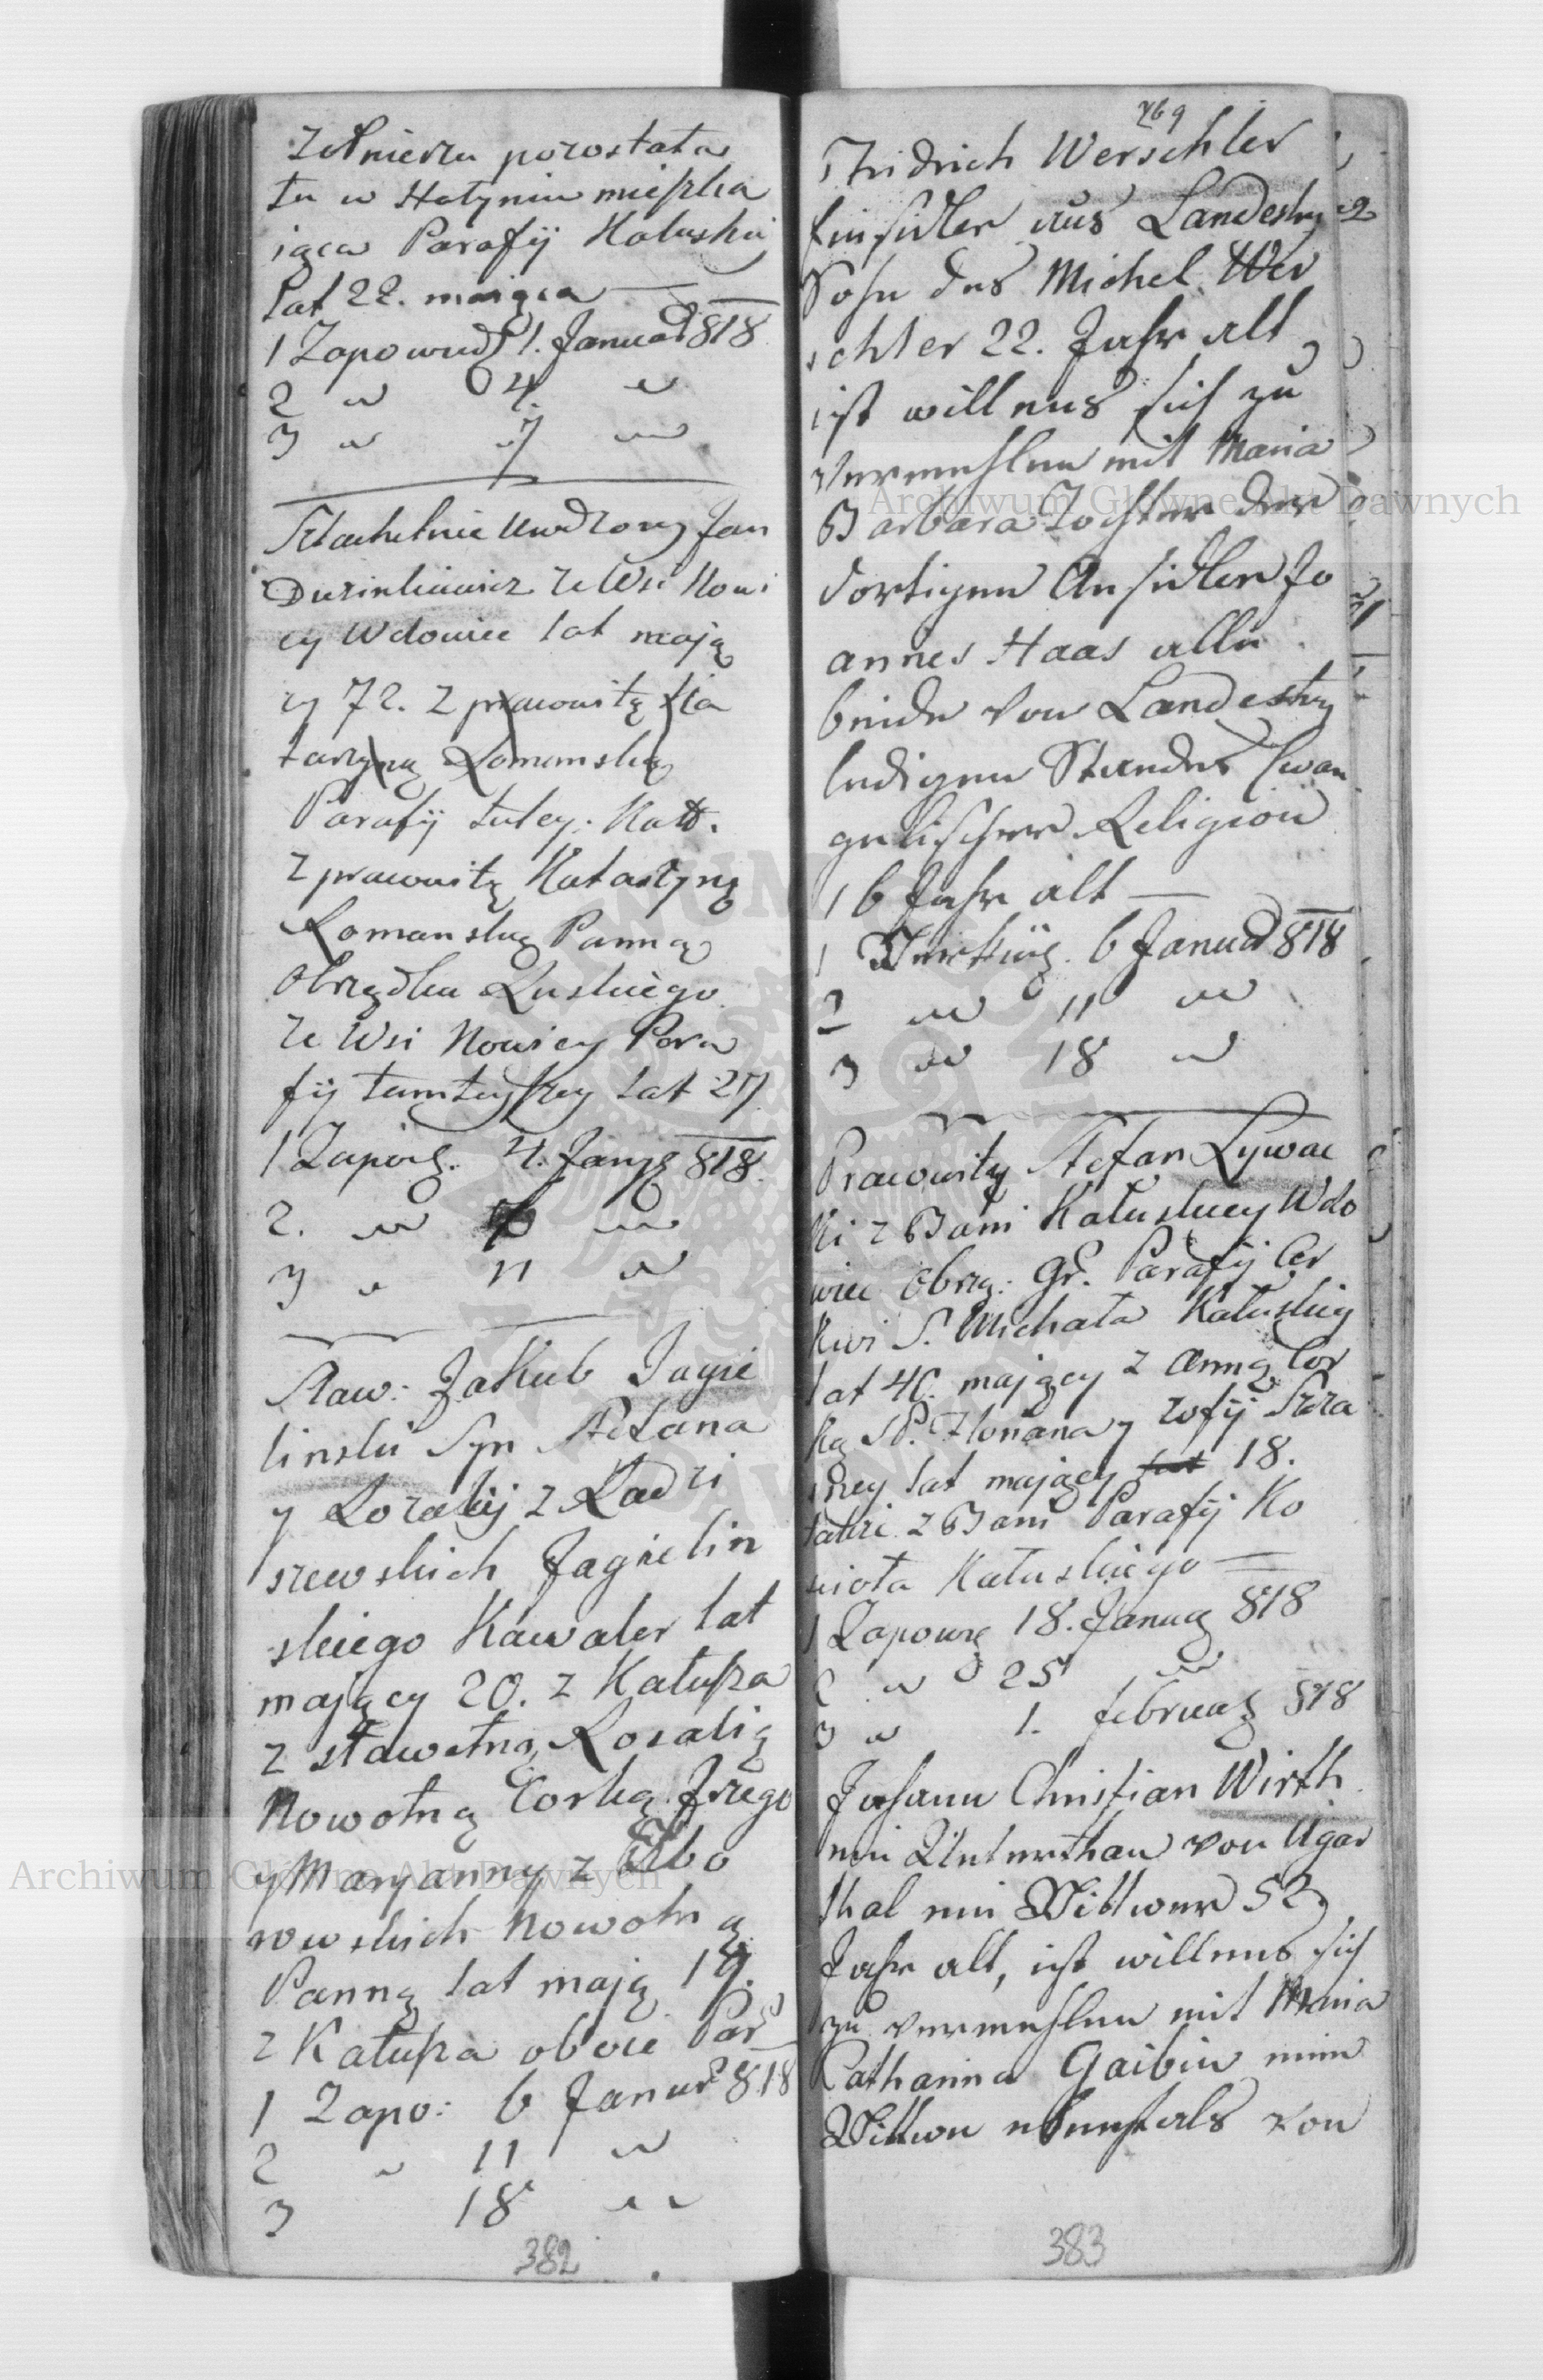 Zołnierza pozostała
tu w Hołyniu mieszka
iąca Parafij Kałuskij
lat 22. maiąca
1 Zapowiedź 1. Januar 818
2 " 4. "
3 " 7 "
Szlachetnie Urodzony Jan
Duzinkiewicz ze Wsi Nowi
cy Wdowiec lat mają
cy 72. z prawowitą Ka
tarzyną Romanską
Parafij tutey: Kało.
z prawowitą Katarzyną
Romanską Panną
Obrządku Ruskiego
ze Wsi Nowicy Para
fij tamteyszey lat 27
1 Zapowż. 4. Janуз 818.
2. " "
3 " 11 "
Sław: Jakub Jagie
linski Syn Stefana
y Rozalij z Radzi
szewskich Jagielin
skiego Kawaler lat
mający 20. z Kałusza
z sławetną Rosalią
Nowotną Corką Jrzego
y Maryanny z Gibo
rowskich Nowotną
Panną lat mają 19.
z Kałusza oboie Par
1 Zapo: 6 Januar 818
2 " 11 "
3 18 "
382
769
Fridrich Werschler
Einsidler aus Landestrey
Sohn des Michel Wer
schler 22. Jahr alt,
ist willens sich zu
vermehlen mit Maria
Barbara Tochter des
dortigen Ansidler Jo
annes Haas alle
beide von Landestrey
ledigen Standes Evan
gelischer Religion
16 Jahr alt
1 Verkü. 6 Januar 818
2 " 11 "
3 " 18 "
Prawowity Stefan Lywac
ki z Bani Kałuskiey Wdo
wiec obrzą: Gr. Parafij Cer
kwi S. Michała Kałuskiey
lat 40. mający z Anną Cor
ką SP. Ilonana y Zofij Szra
mey lat mający 18.
także z Bani Parafij Ko
scioła Kałuskiego
1 Zapowż 18. Janua 818
2 " 25 "
3 " 1. februar 818
Johann Christian Wirth
ein Unterthan von Ugar
thal ein Wittwer 52
Jahr alt, ist willens sich
zu vermehlen mit Maria
Catharina Gaibin eine
Wittwe ebenfals von
383
Archiwum Główne Akt Dawnych
Archiwum Główne Akt Dawnych